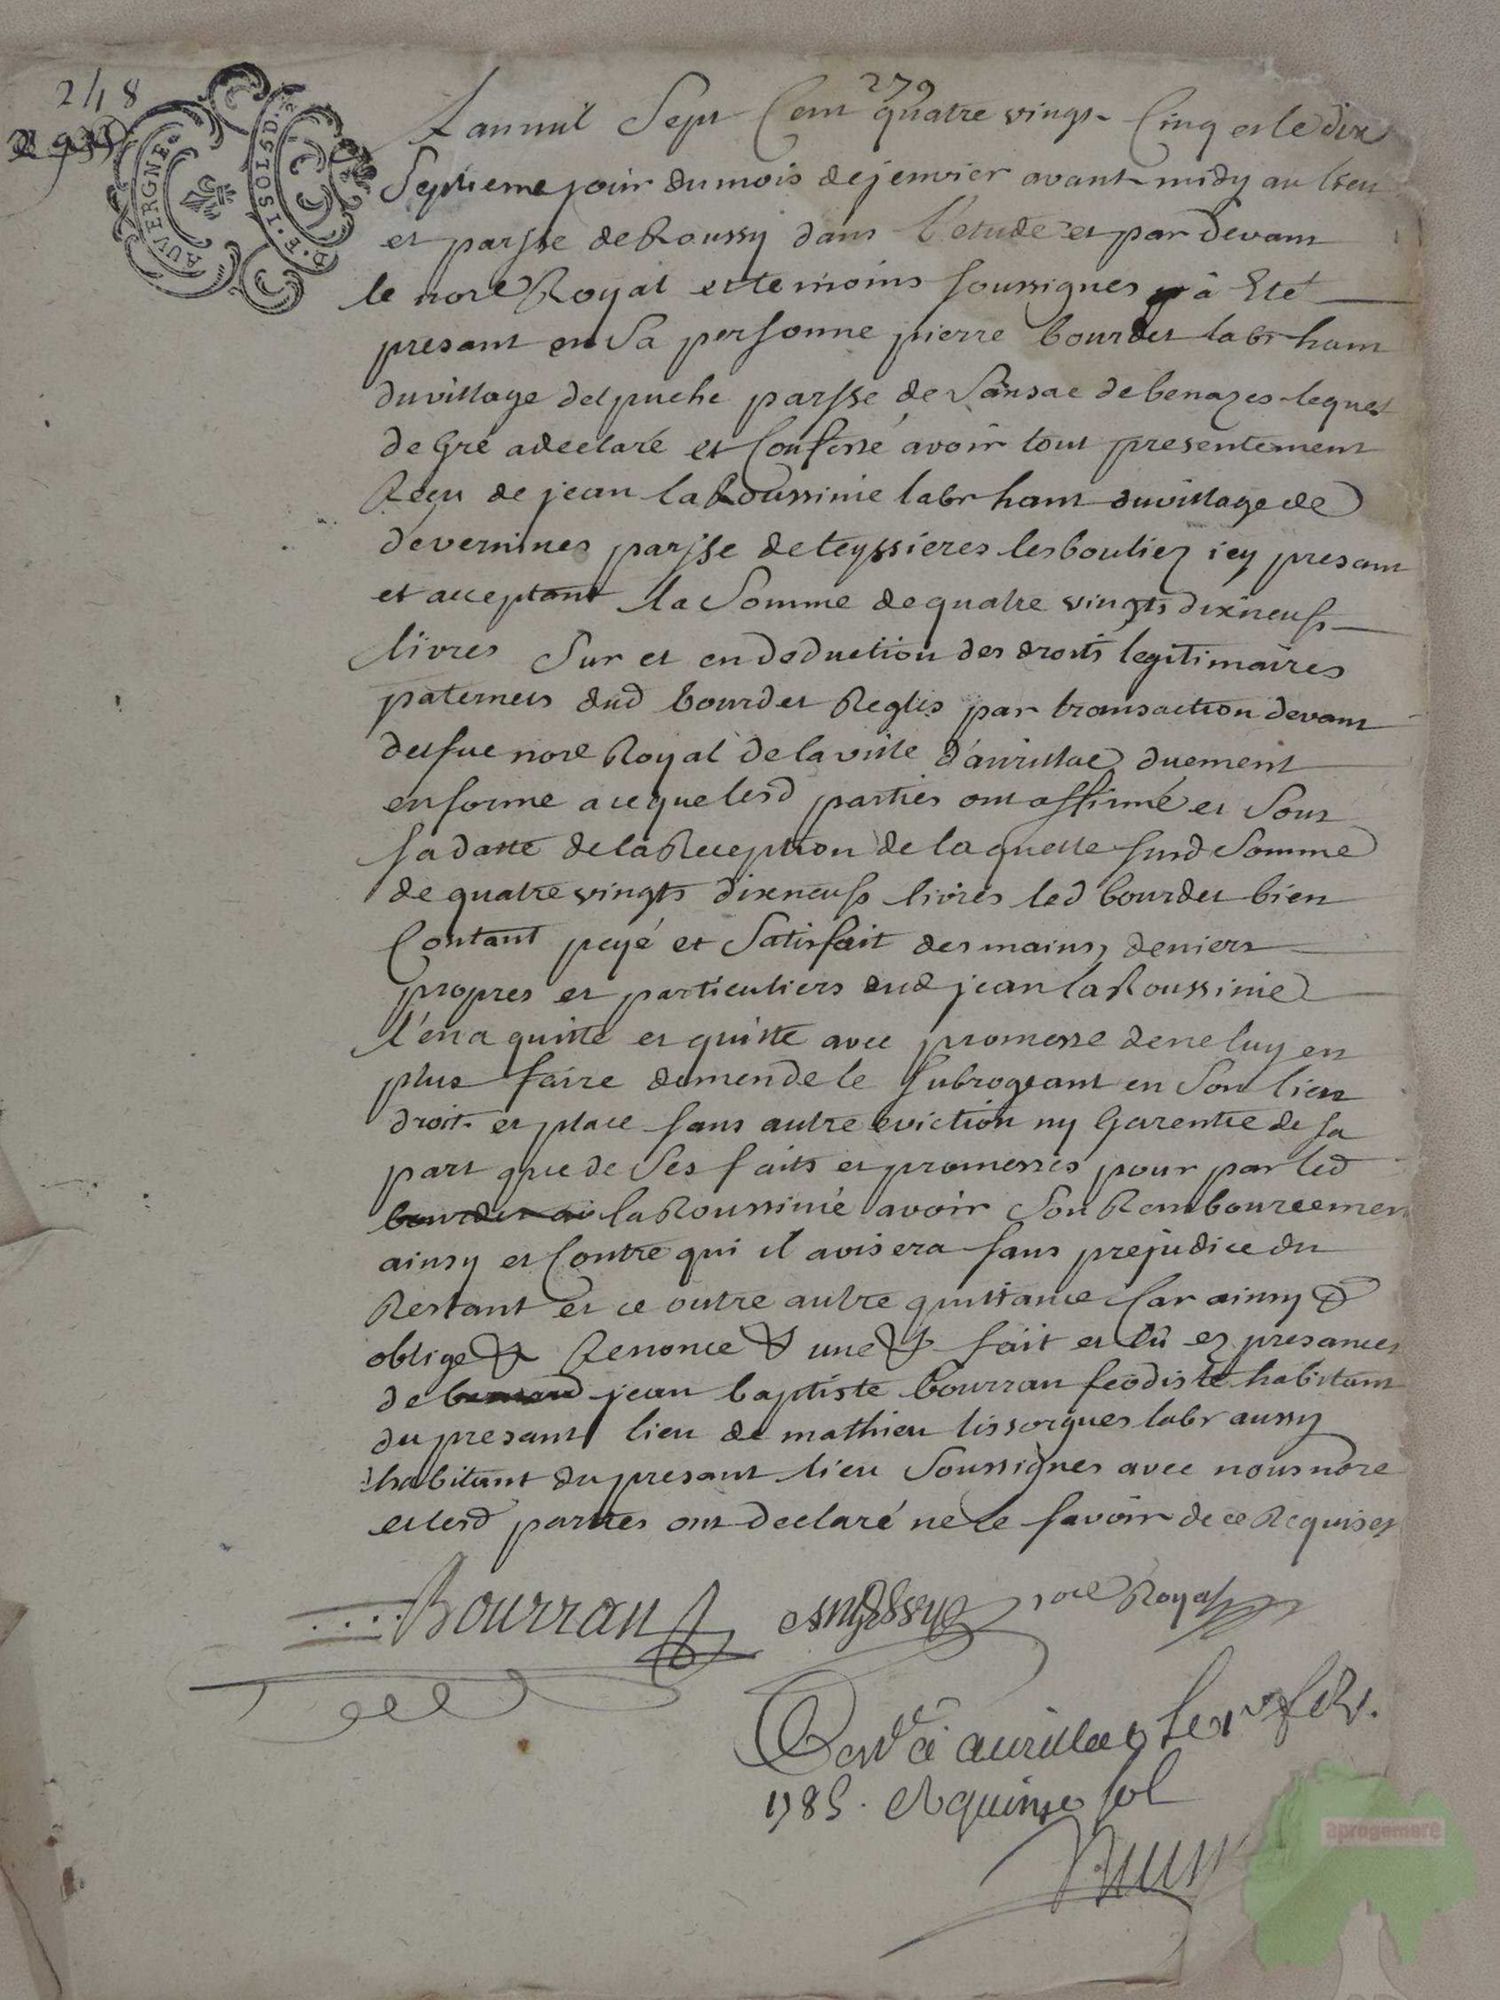 248
279
AUVERGNE
D.E.1SOLS D.
Lan mil Sept Cent quatre vingt Cinq et le dix
Septieme jour du mois de jenvier avant midy au lieu
et parsse de Roussy dans l'etude et par devant
le nore Royal et temoins soussignes a Eté
presant en Sa personne pierre bourdet labr hant
du village delpuche parsse de Sansac de benazes lequel
de Gré a declaré et Confessé avoir tout presentement
Reçu de jean la Roussinie labr hant du village de
devernines parsse de teyssieres les bouliez icy presant
et acceptant la Somme de quatre vingts dixneuf
livres Sur et en deduction des droits legitimaires
paternels dud bourdet Reglés par transaction devant
delfue nore Royal de la ville d'aurillac duement
en forme ace que lesd parties ont affirmé et Sous
sa datte de la Reception de la quelle susd Somme
de quatre vingts dixneuf livres led bourdet bien
Contant payé et Satisfait des mains, deniers
propres et particuliers dud jean la Roussinie
l'en a quitté et quitte avec promesse de ne luy en
plus faire demende le subrogeant en Son lieu
droit et place sans autre eviction ny Garentie de sa
part que de Ses faits et promesses pour par led
bourdet la Roussinie avoir Son Rembourcement
ainsy et Contre qui il avisera sans prejudice du
Restant et ce outre autre quittance Car ainsy &
oblige & Renonce & une & fait et lû ez presances
de jean baptiste bourran feodiste habitant
du presant lieu de mathieu lissorgues labr aussy
habitant du presant lieu Soussignes avec nous nore
et lesd parties ont declaré ne le savoir de ce Requises
Bourran
nore Royal
à aurillac le 1er
1785. quinze sol
aprogemere